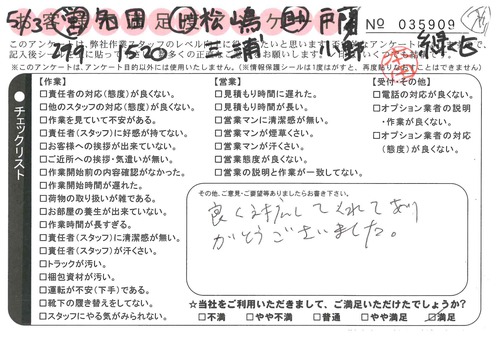 5/3
No 035909
※このアンケートは、アンケート目的以外には使用いたしません。(※情報保護シールは1度はがすと、再度貼りなおすことはできません)
チェックリスト
【作業】
□責任者の対応(態度)が良くない。
□他のスタッフの対応(態度)が良くない。
□作業を見ていて不安がある。
□責任者(スタッフ)に好感が持てない。
□お客様への挨拶が出来ていない。
□ご近所への挨拶・気遣いが無い。
□作業開始前の内容確認がなかった。
□作業開始時間が遅れた。
□荷物の取り扱いが雑である。
□お部屋の養生が出来ていない。
□作業時間が長すぎる。
□責任者(スタッフ)に清潔感が無い。
□責任者(スタッフ)が汗くさい。
□トラックが汚い。
□梱包資材が汚い。
□運転が不安(下手)である。
□靴下の履き替えをしてない。
□スタッフにやる気がみられない。
【営業】
□見積もり時間に遅れた。
□見積もり時間が長い。
□営業マンに清潔感が無い。
□営業マンが煙草くさい。
□営業マンが汗くさい。
□営業態度が良くない。
□営業の説明と作業が一致してない。
【受付・その他】
□電話の対応が良くない。
□オプション業者の説明・作業が良くない。
□オプション業者の対応(態度)が良くない。
その他、ご意見・ご要望等ありましたらお書き下さい。
良く対応してくれてあり
がとうございました。
☆当社をご利用いただきまして、ご満足いただけたでしょうか?
□不満 □やや不満 □普通 □やや満足 ☑満足